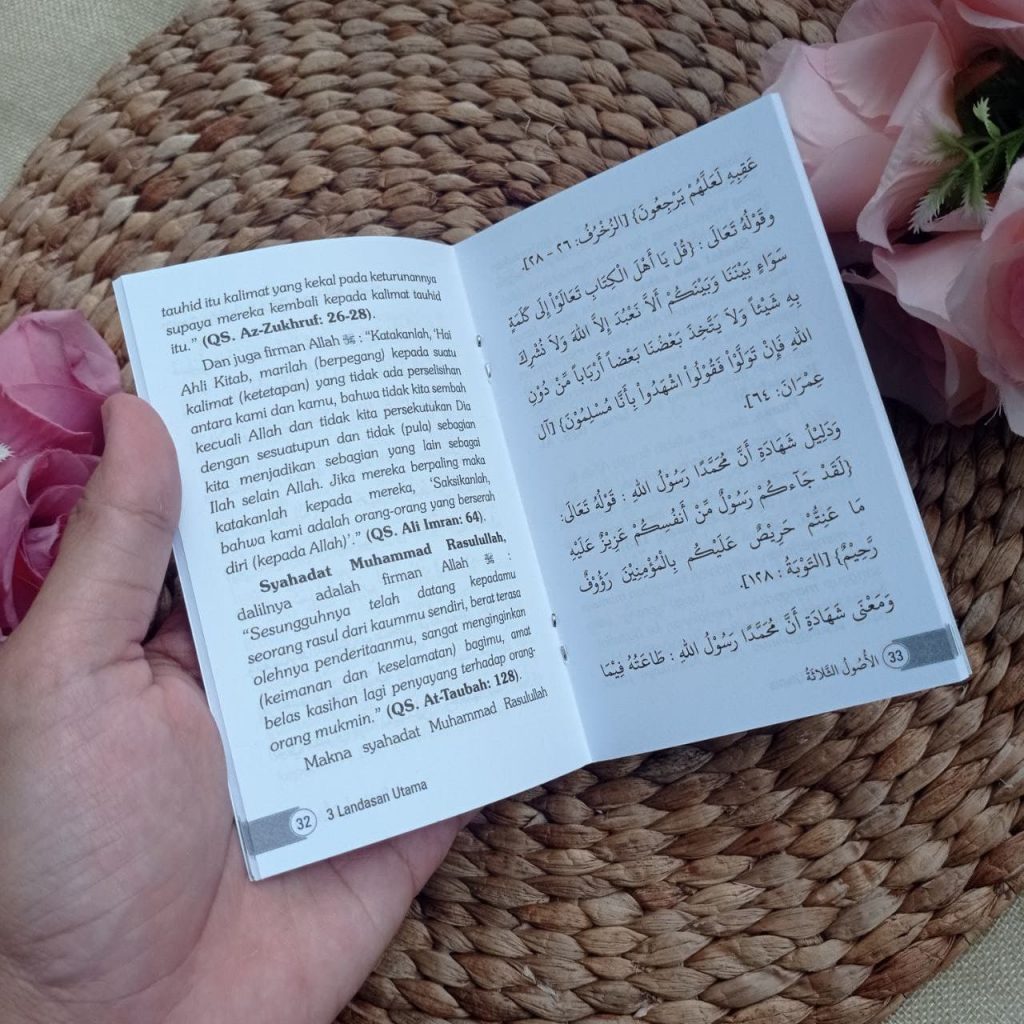 tauhid itu kalimat yang kekal pada keturunannya
supaya mereka kembali kepada kalimat tauhid
itu.” (QS. Az-Zukhruf: 26-28).
Dan juga firman Allah ﷻ : “Katakanlah, ‘Hai
Ahli Kitab, marilah (berpegang) kepada suatu
kalimat (ketetapan) yang tidak ada perselisihan
antara kami dan kamu, bahwa tidak kita sembah
kecuali Allah dan tidak kita persekutukan Dia
dengan sesuatupun dan tidak (pula) sebagian
kita menjadikan sebagian yang lain sebagai
Ilah selain Allah. Jika mereka berpaling maka
katakanlah kepada mereka, ‘Saksikanlah,
bahwa kami adalah orang-orang yang berserah
diri (kepada Allah)’.” (QS. Ali Imran: 64).
Syahadat Muhammad Rasulullah,
dalilnya adalah firman Allah ﷻ :
“Sesungguhnya telah datang kepadamu
seorang rasul dari kaummu sendiri, berat terasa
olehnya penderitaanmu, sangat menginginkan
(keimanan dan keselamatan) bagimu, amat
belas kasihan lagi penyayang terhadap orang-
orang mukmin.” (QS. At-Taubah: 128).
Makna syahadat Muhammad Rasulullah
32 3 Landasan Utama
عَقِبِهِ لَعَلَّهُمْ يَرْجِعُونَ} [الزُّخْرُفُ: ٢٦ - ٢٨].
وقَوْلُهُ تَعَالَى : {قُلْ يَا أَهْلَ الْكِتَابِ تَعَالَوْاْ إِلَى كَلَمَةٍ
سَوَاءٍ بَيْنَنَا وَبَيْنَكُمْ أَلاَّ نَعْبُدَ إِلاَّ اللهَ وَلاَ نُشْرِكَ
بِهِ شَيْئاً وَلاَ يَتَّخِذَ بَعْضُنَا بَعْضاً أَرْبَاباً مِّنْ دُوْنِ
اللهِ فَإِنْ تَوَلَّوْاْ فَقُولُواْ اشْهَدُواْ بِأَنَّا مُسْلِمُونَ} [آل
عِمْرَانَ: ٦٤].
وَدَلِيْلُ شَهَادَةِ أَنَّ مُحَمَّدًا رَسُوْلُ اللهِ : قَوْلُهُ تَعَالَى:
{لَقَدْ جَآءَكُمْ رَسُوْلٌ مِّنْ أَنفُسِكُمْ عَزِيْزٌ عَلَيْهِ
مَا عَنِتُّمْ حَرِيْصٌ عَلَيْكُم بِالْمُؤْمِنِيْنَ رَؤُوْفٌ
رَّحِيْمٌ} [التَّوْبَةُ : ١٢٨].
وَمَعْنَى شَهَادَةِ أَنَّ مُحَمَّدًا رَسُوْلُ اللهِ : طَاعَتُهُ فِيْمَا
الأُصُولُ الثَّلاثَةُ 33